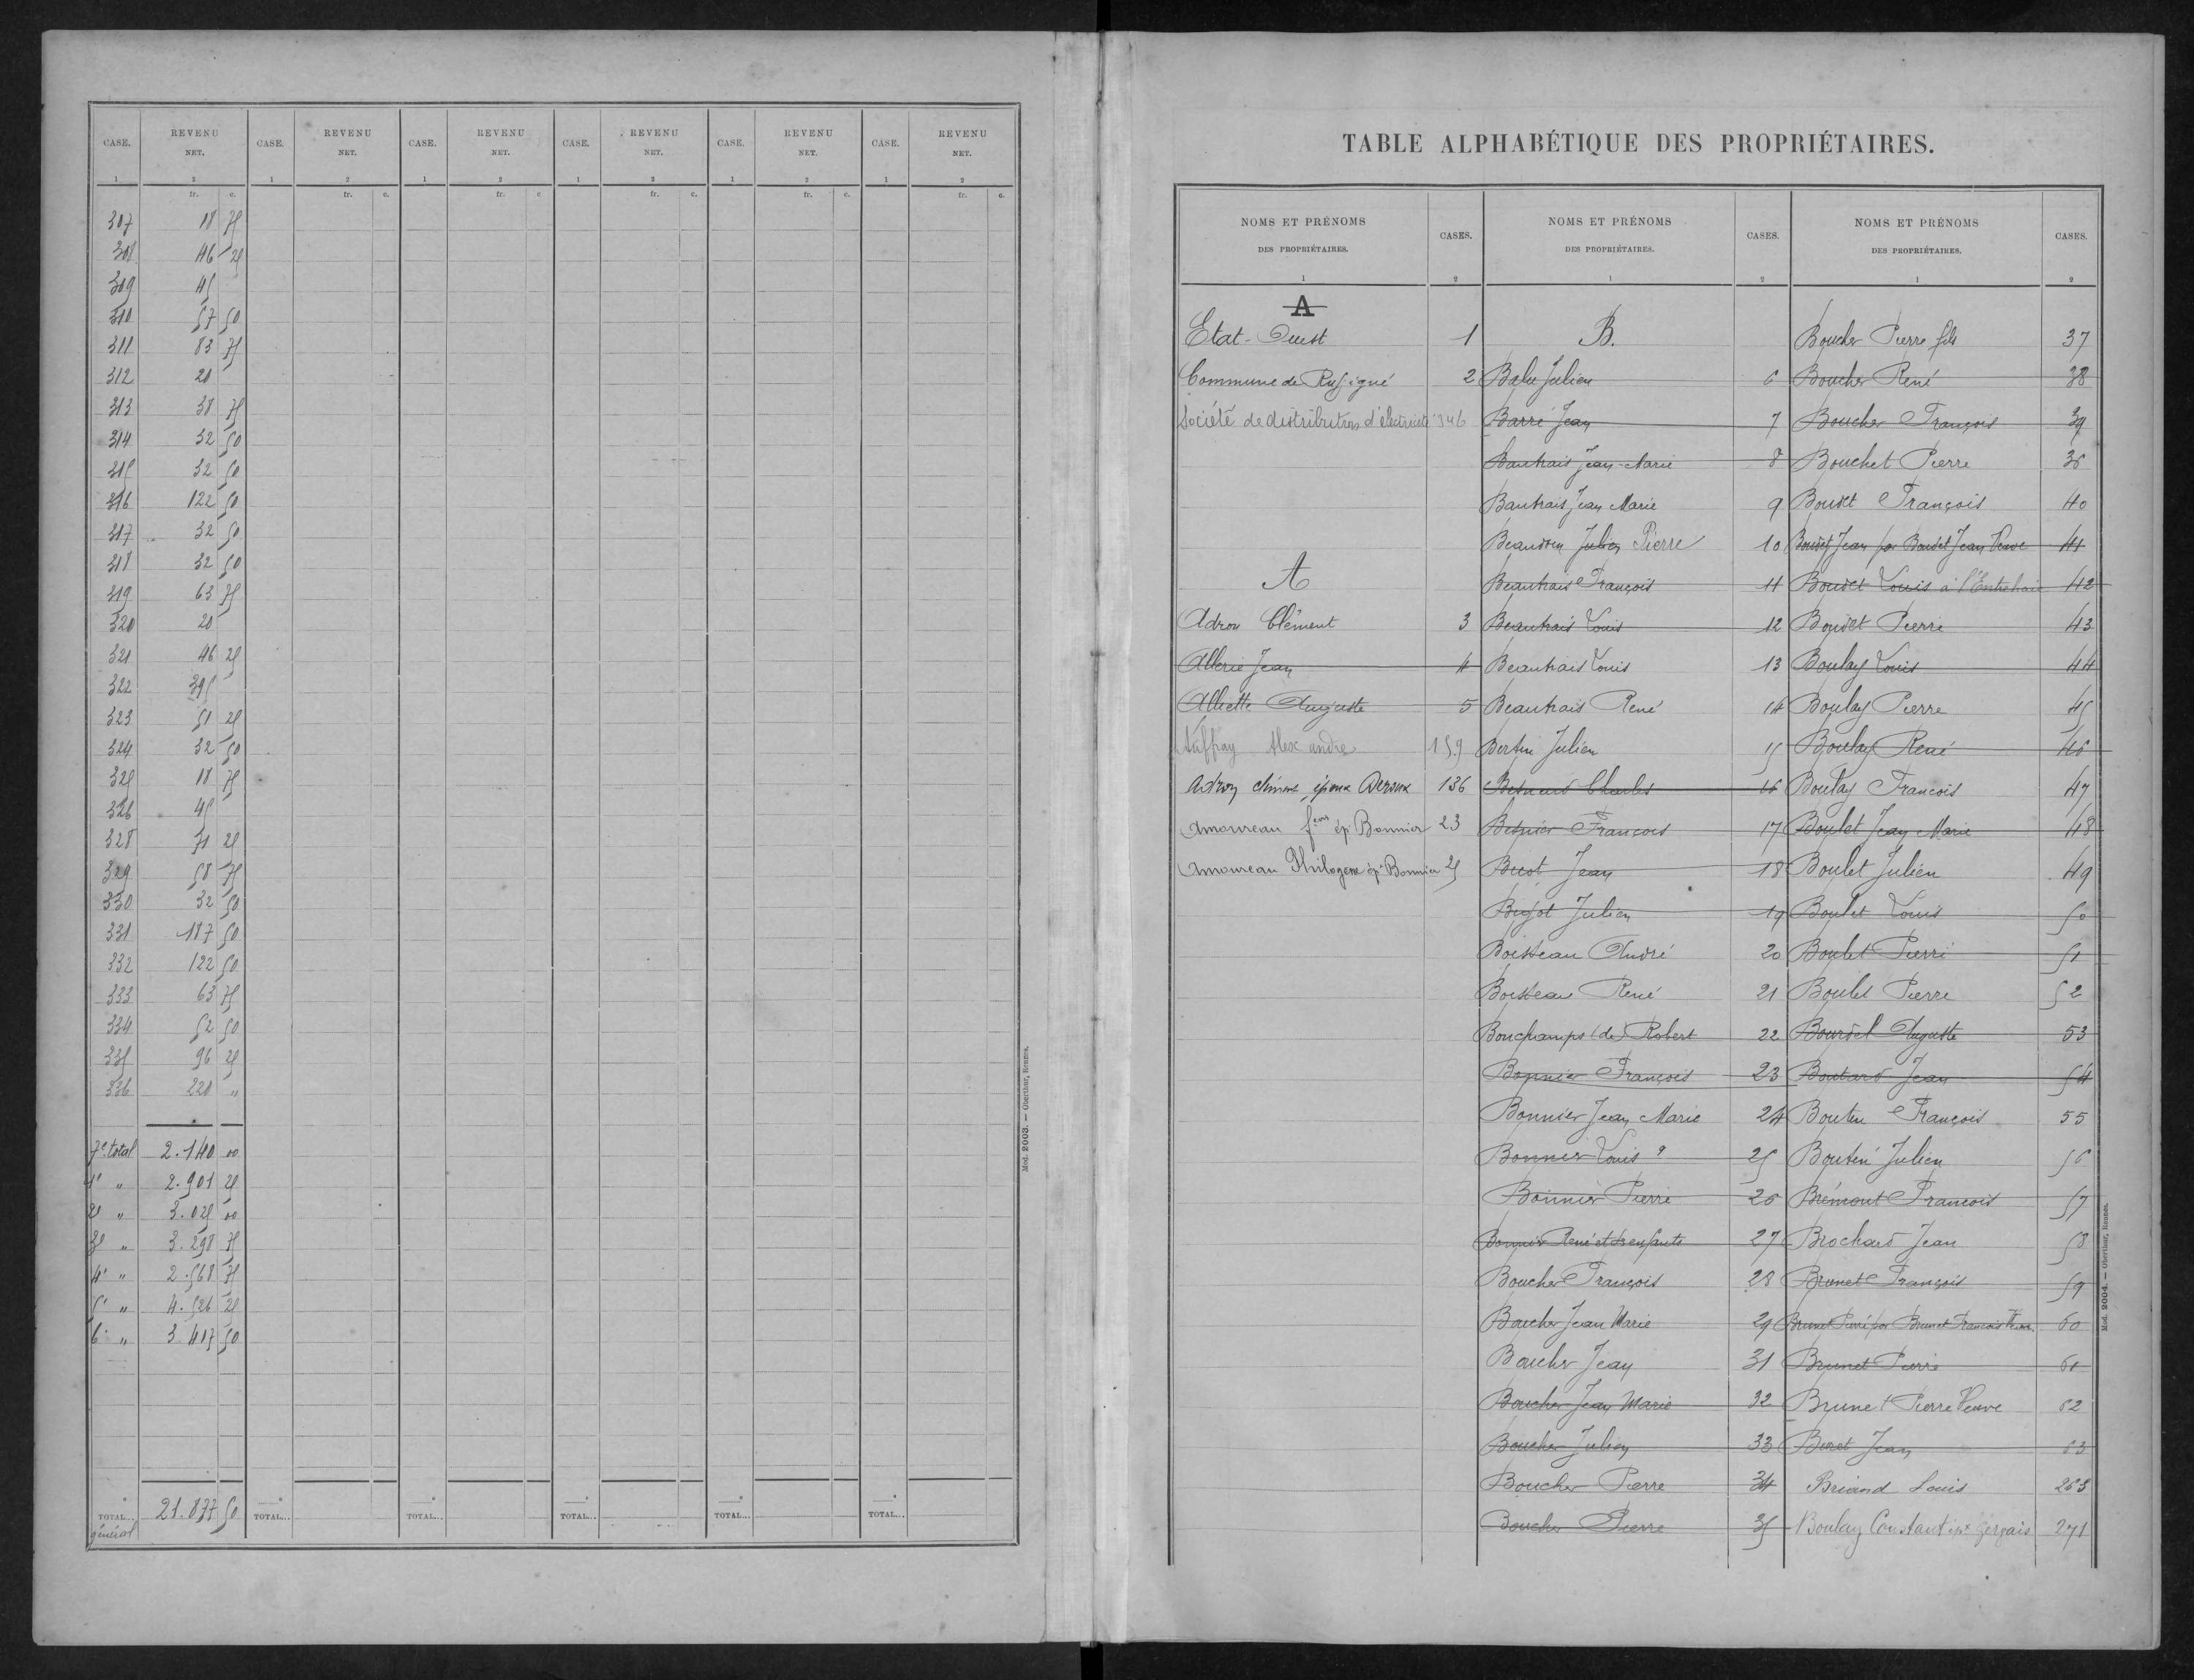 CASE. REVENU NET. CASE. REVENU NET. CASE. REVENU NET. CASE. REVENU NET. CASE. REVENU NET. CASE. REVENU NET.
1 2 1 2 1 2 1 2 1 2 1 2
fr. c. fr. c. fr. c. fr. c. fr. c. fr. c.
307 18 75
308 46 25
309 45
310 57 50
311 83 75
312 20
313 38 75
314 32 50
315 32 50
316 122 50
317 32 50
318 32 50
319 63 75
320 20
321 46 25
322 395
323 51 25
324 32 50
325 18 75
326 45
328 71 25
329 58 75
330 32 50
331 187 50
332 122 50
333 63 75
334 52 50
335 96 25
336 220 "
7e total 2.140 00
1e " 2.901 25
2e " 3.025 00
3e " 3.298 75
4e " 2.568 75
5e " 4.526 25
6e " 3.417 50
TOTAL... général 21.877 50 TOTAL... TOTAL... TOTAL... TOTAL... TOTAL...
Mod. 2003. — Oberthur, Rennes.
TABLE ALPHABÉTIQUE DES PROPRIÉTAIRES.
NOMS ET PRÉNOMS DES PROPRIÉTAIRES. CASES. NOMS ET PRÉNOMS DES PROPRIÉTAIRES. CASES. NOMS ET PRÉNOMS DES PROPRIÉTAIRES. CASES.
1 2 1 2 1 2
A
Etat-Ouest 1
Commune de Rusigné 2
Société de distribution d'électricité 346
A
Adron Clément 3
Allerie Jean 4
Alliette Auguste 5
Auffray Alexandre 159
Adron Clémence, épouse Deroux 136
Amoureau fcois ép. Bonnier 23
Amoureau Philogene ép. Bonnier 25
B.
Balu Julien 6
Barré Jean 7
Bautrais Jean-Marie 8
Bautrais Jean Marie 9
Beaudou Julien Pierre 10
Beautrais François 11
Beautrais Louis 12
Beautrais Louis 13
Beautrais René 14
Bertin Julien 15
Besnard Charles 16
Besnier François 17
Bicot Jean 18
Bigot Julien 19
Boisseau André 20
Boisseau René 21
Bonchamps (de) Robert 22
Bonnier François 23
Bonnier Jean Marie 24
Bonnier Louis 25
Bonnier Pierre 26
Bonnier René et ses enfants 27
Boucher François 28
Boucher Jean Marie 29
Boucher Jean 31
Boucher Jean Marie 32
Boucher Julien 33
Boucher Pierre 34
Boucher Pierre 35
Boucher Pierre fils 37
Boucher René 38
Boucher François 39
Bouchet Pierre 36
Boudet François 40
Boudet Jean par Boudet Jean Veuve 41
Boudet Louis à l'Entrehaie 42
Boudet Pierre 43
Boulay Louis 44
Boulay Pierre 45
Boulay René 46
Boulay François 47
Boulet Jean Marie 48
Boulet Julien 49
Boulet Louis 50
Boulet Pierre 51
Boulet Pierre 52
Bourdel Auguste 53
Boutard Jean 54
Boutin François 55
Boutin Julien 56
Brémont François 57
Brochard Jean 58
Brunet François 59
Brunet Pierre par Brunet François Veuve 60
Brunet Pierre 61
Brunet Pierre Veuve 62
Buret Jean 63
Briand Louis 263
Boulay Constant épx Gerçais 271
Mod. 2004. — Oberthur, Rennes.